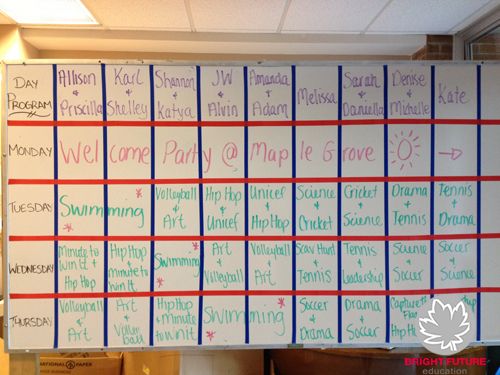 DAY PROGRAM Allison & Priscilla Karl & Shelley Shannon & Katya JW & Alvin Amanda & Adam Melissa Sarah & Daniella Denise & Michelle Kate
MONDAY Welcome Party @ Maple Grove
TUESDAY Swimming * Volleyball & Art Hip Hop & Unicef Unicef & Hip Hop Science & Cricket Cricket & Science Drama & Tennis Tennis & Drama
WEDNESDAY Minute to Win It & Hip Hop Hip Hop & minute to Win It Swimming * Art & Volleyball Volleyball & Art Scav Hunt & Tennis Tennis & Leadership Science & Soccer Soccer & Science
THURSDAY Volleyball & Art Art & Volleyball Hip Hop & minute to Win It Swimming * * Soccer & Drama Drama & Soccer Capture the Flag Hip Ho
BRIGHT FUTURE
education
INTERNATIONAL PAPER